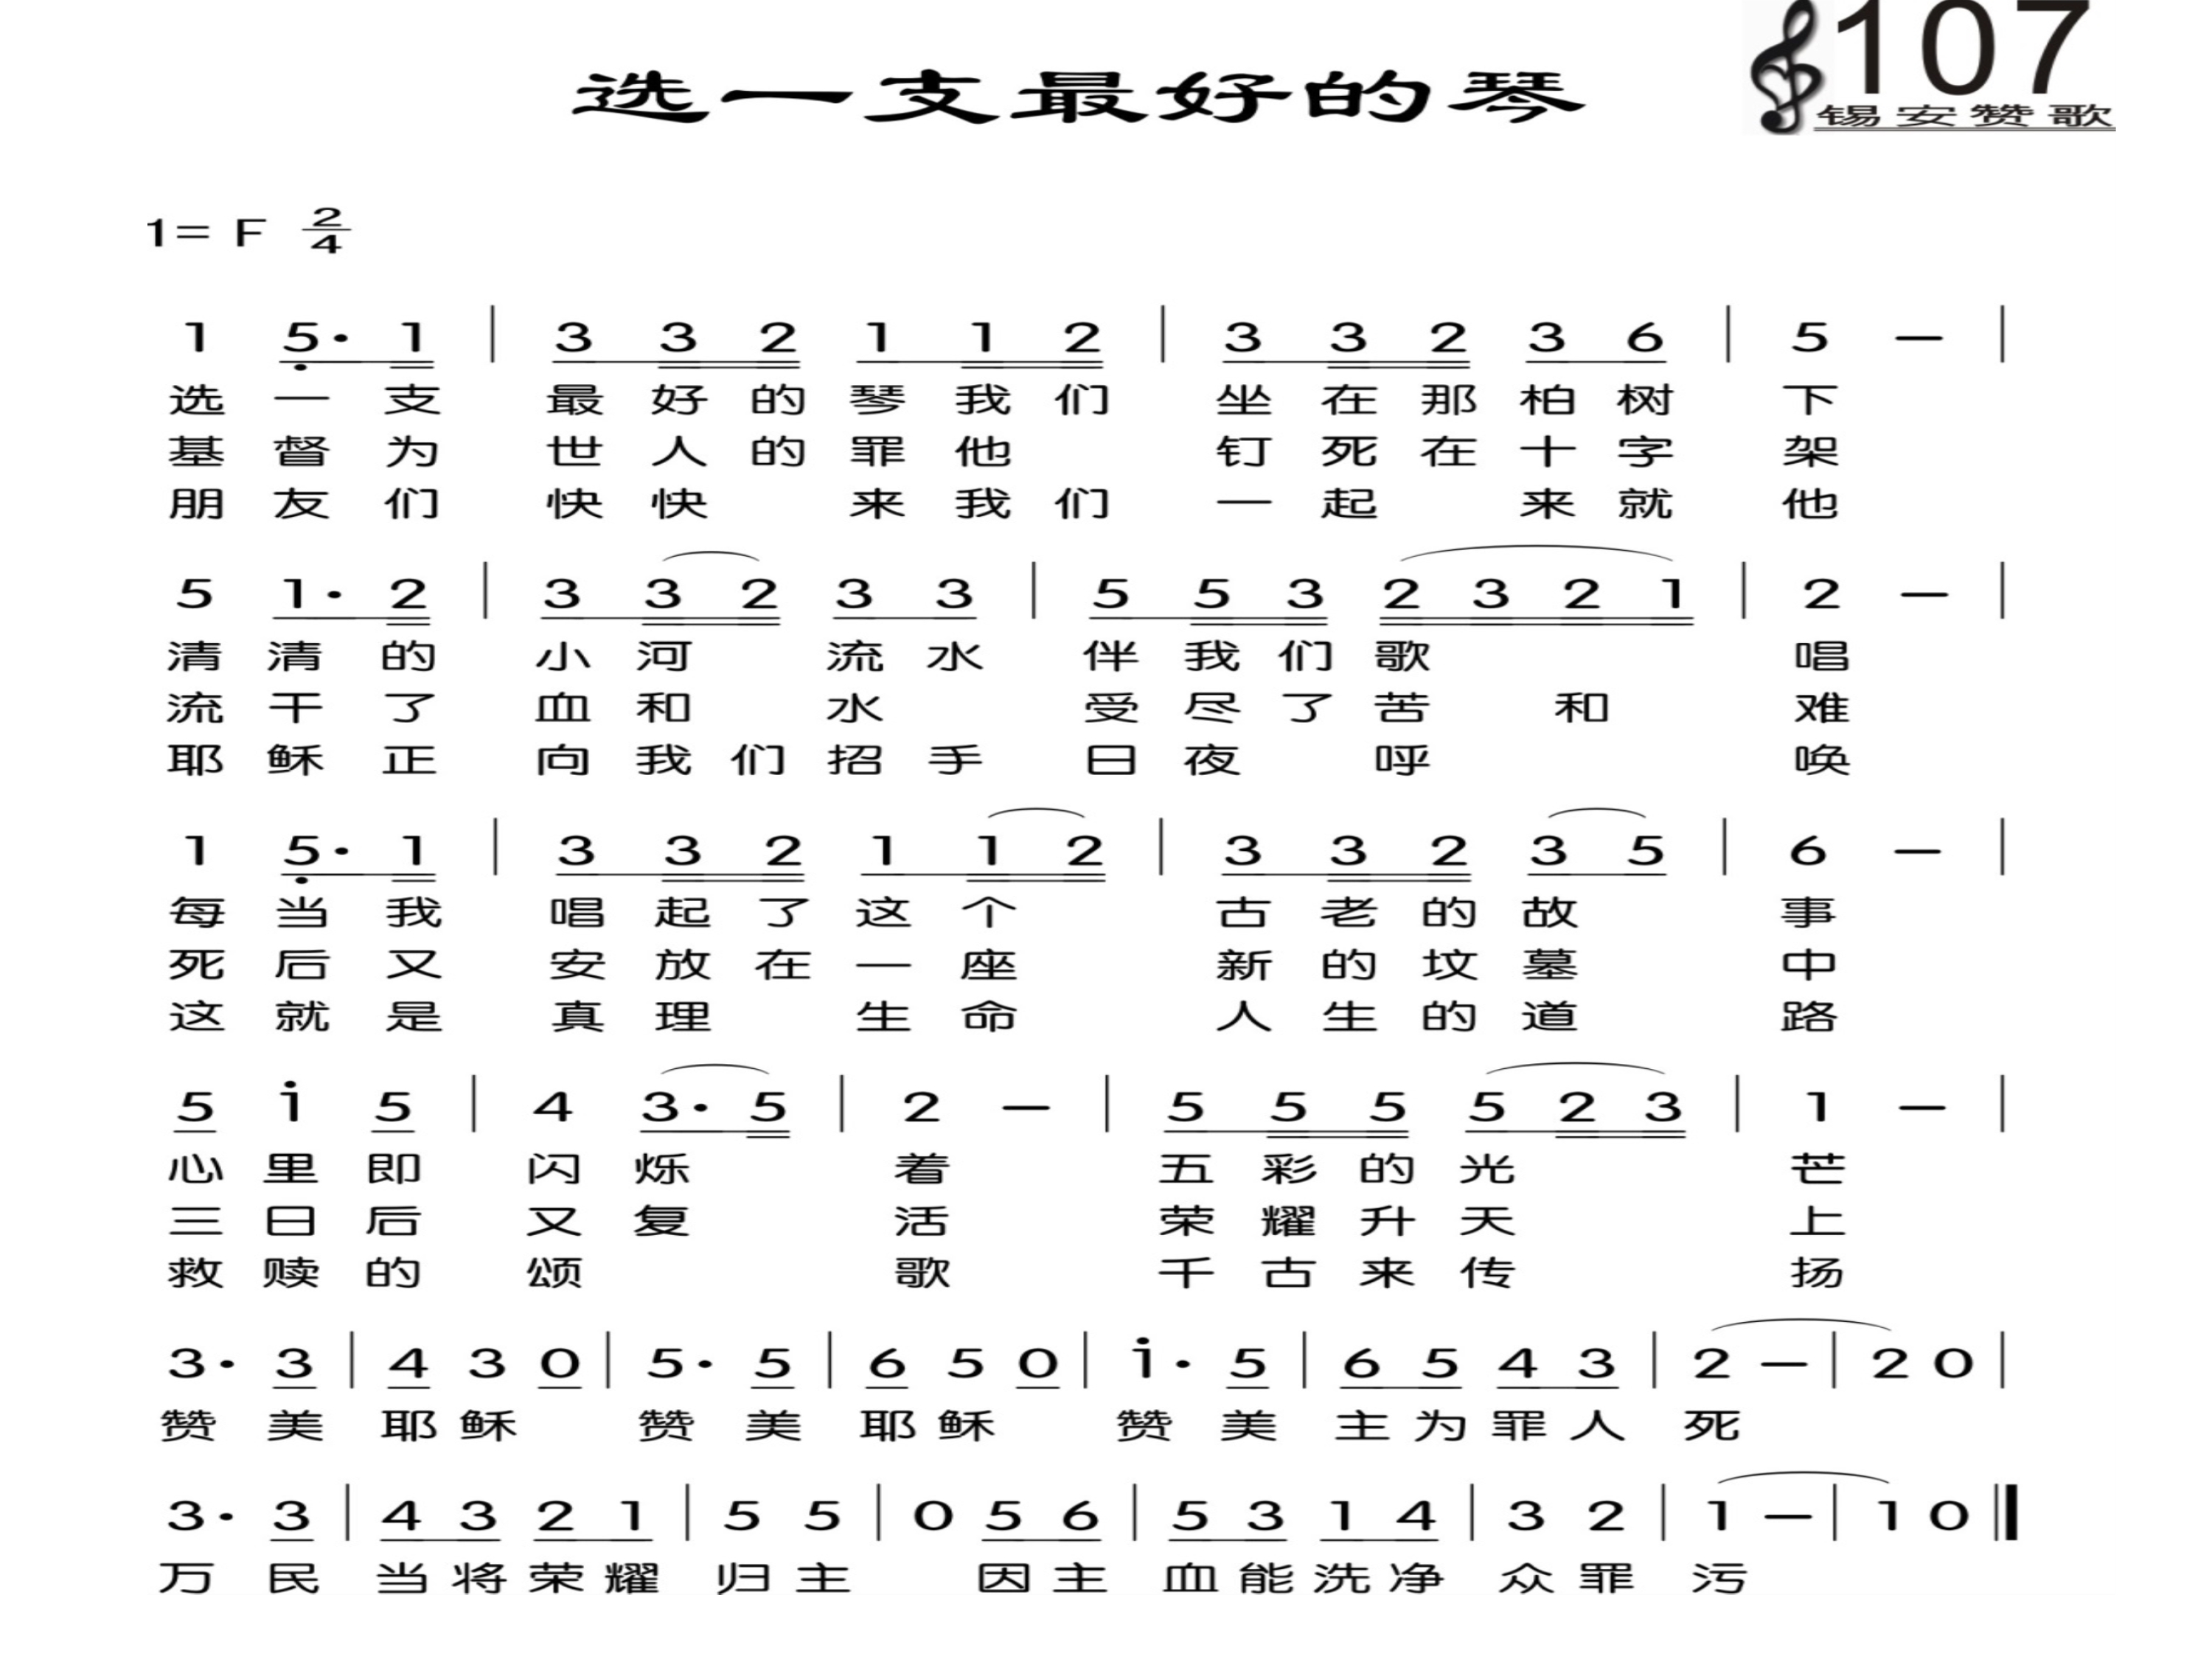 107
锡安赞歌
选一支最好的琴
1= F 2/4
1 5· 1 | 3 3 2 1 1 2 | 3 3 2 3 6 | 5 — |
选一支 最好的琴我们 坐在那柏树 下
基督为 世人的罪他 钉死在十字 架
朋友们 快快 来我们 一起 来就 他
5 1· 2 | 3 3 2 3 3 | 5 5 3 2 3 2 1 | 2 — |
清清的 小河 流水 伴我们歌 唱
流干了 血和 水 受尽了苦 和 难
耶稣正 向我们招手 日夜 呼 唤
1 5· 1 | 3 3 2 1 1 2 | 3 3 2 3 5 | 6 — |
每当我 唱起了这个 古老的故 事
死后又 安放在一座 新的坟墓 中
这就是 真理 生命 人生的道 路
5 i 5 | 4 3· 5 | 2 — | 5 5 5 5 2 3 | 1 — |
心里即 闪烁 着 五彩的光 芒
三日后 又复 活 荣耀升天 上
救赎的 颂 歌 千古来传 扬
3· 3 | 4 3 0 | 5· 5 | 6 5 0 | i· 5 | 6 5 4 3 | 2 — | 2 0 |
赞美 耶稣 赞美 耶稣 赞美 主为罪人 死
3· 3 | 4 3 2 1 | 5 5 | 0 5 6 | 5 3 1 4 | 3 2 | 1 — | 1 0 ‖
万民 当将荣耀 归主 因主 血能洗净 众罪 污